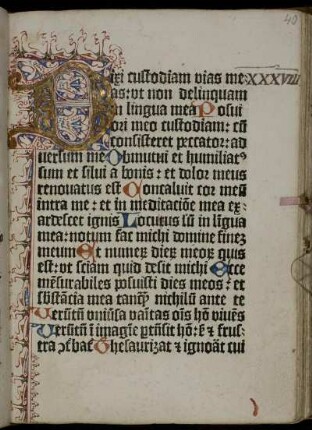 40
Dixi custodiam vias me XXXVIII
as: vt non delinquam
in lingua mea Posui
ori meo custodiam: cū
cōsisteret peccator: ad
uersum me Obmutui et humiliat᷒
sum et silui a bonis: et dolor meus
renouatus est Concaluit cor meū
intra me: et in meditatiōe mea ex
ardescet ignis Locutus sū in līgua
mea: notum fac michi domine finez
meum Et numerꝝ dierꝝ meorꝝ quis
est: vt sciam quid desit michi Ecce
mēsurabiles posuisti dies meos: et
sb̄stācia mea tanqꝫ nichilū ante te
Verūtn̄ vniūsa vaītas oīs hō viuēs
Verūtn̄ ī imagīe ptrāsit hō: ⁊ frus
tra ꝯt᷑bat᷑ Thesaurizat ⁊ ignoāt cui